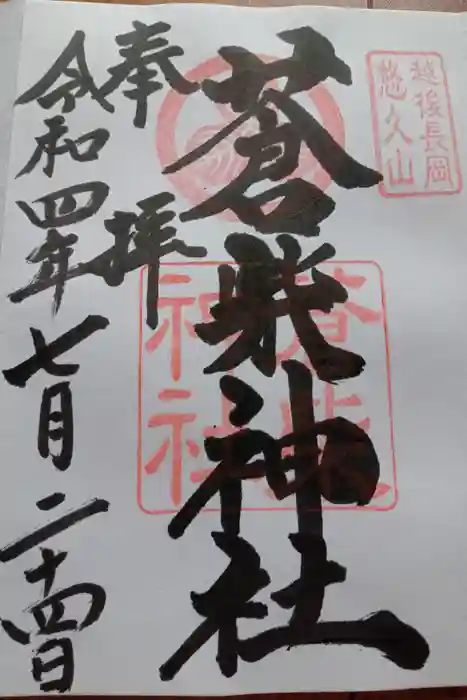 越後長岡
悠久山
蒼柴神社
蒼柴
神社
奉拝
令和四年七月二十四日